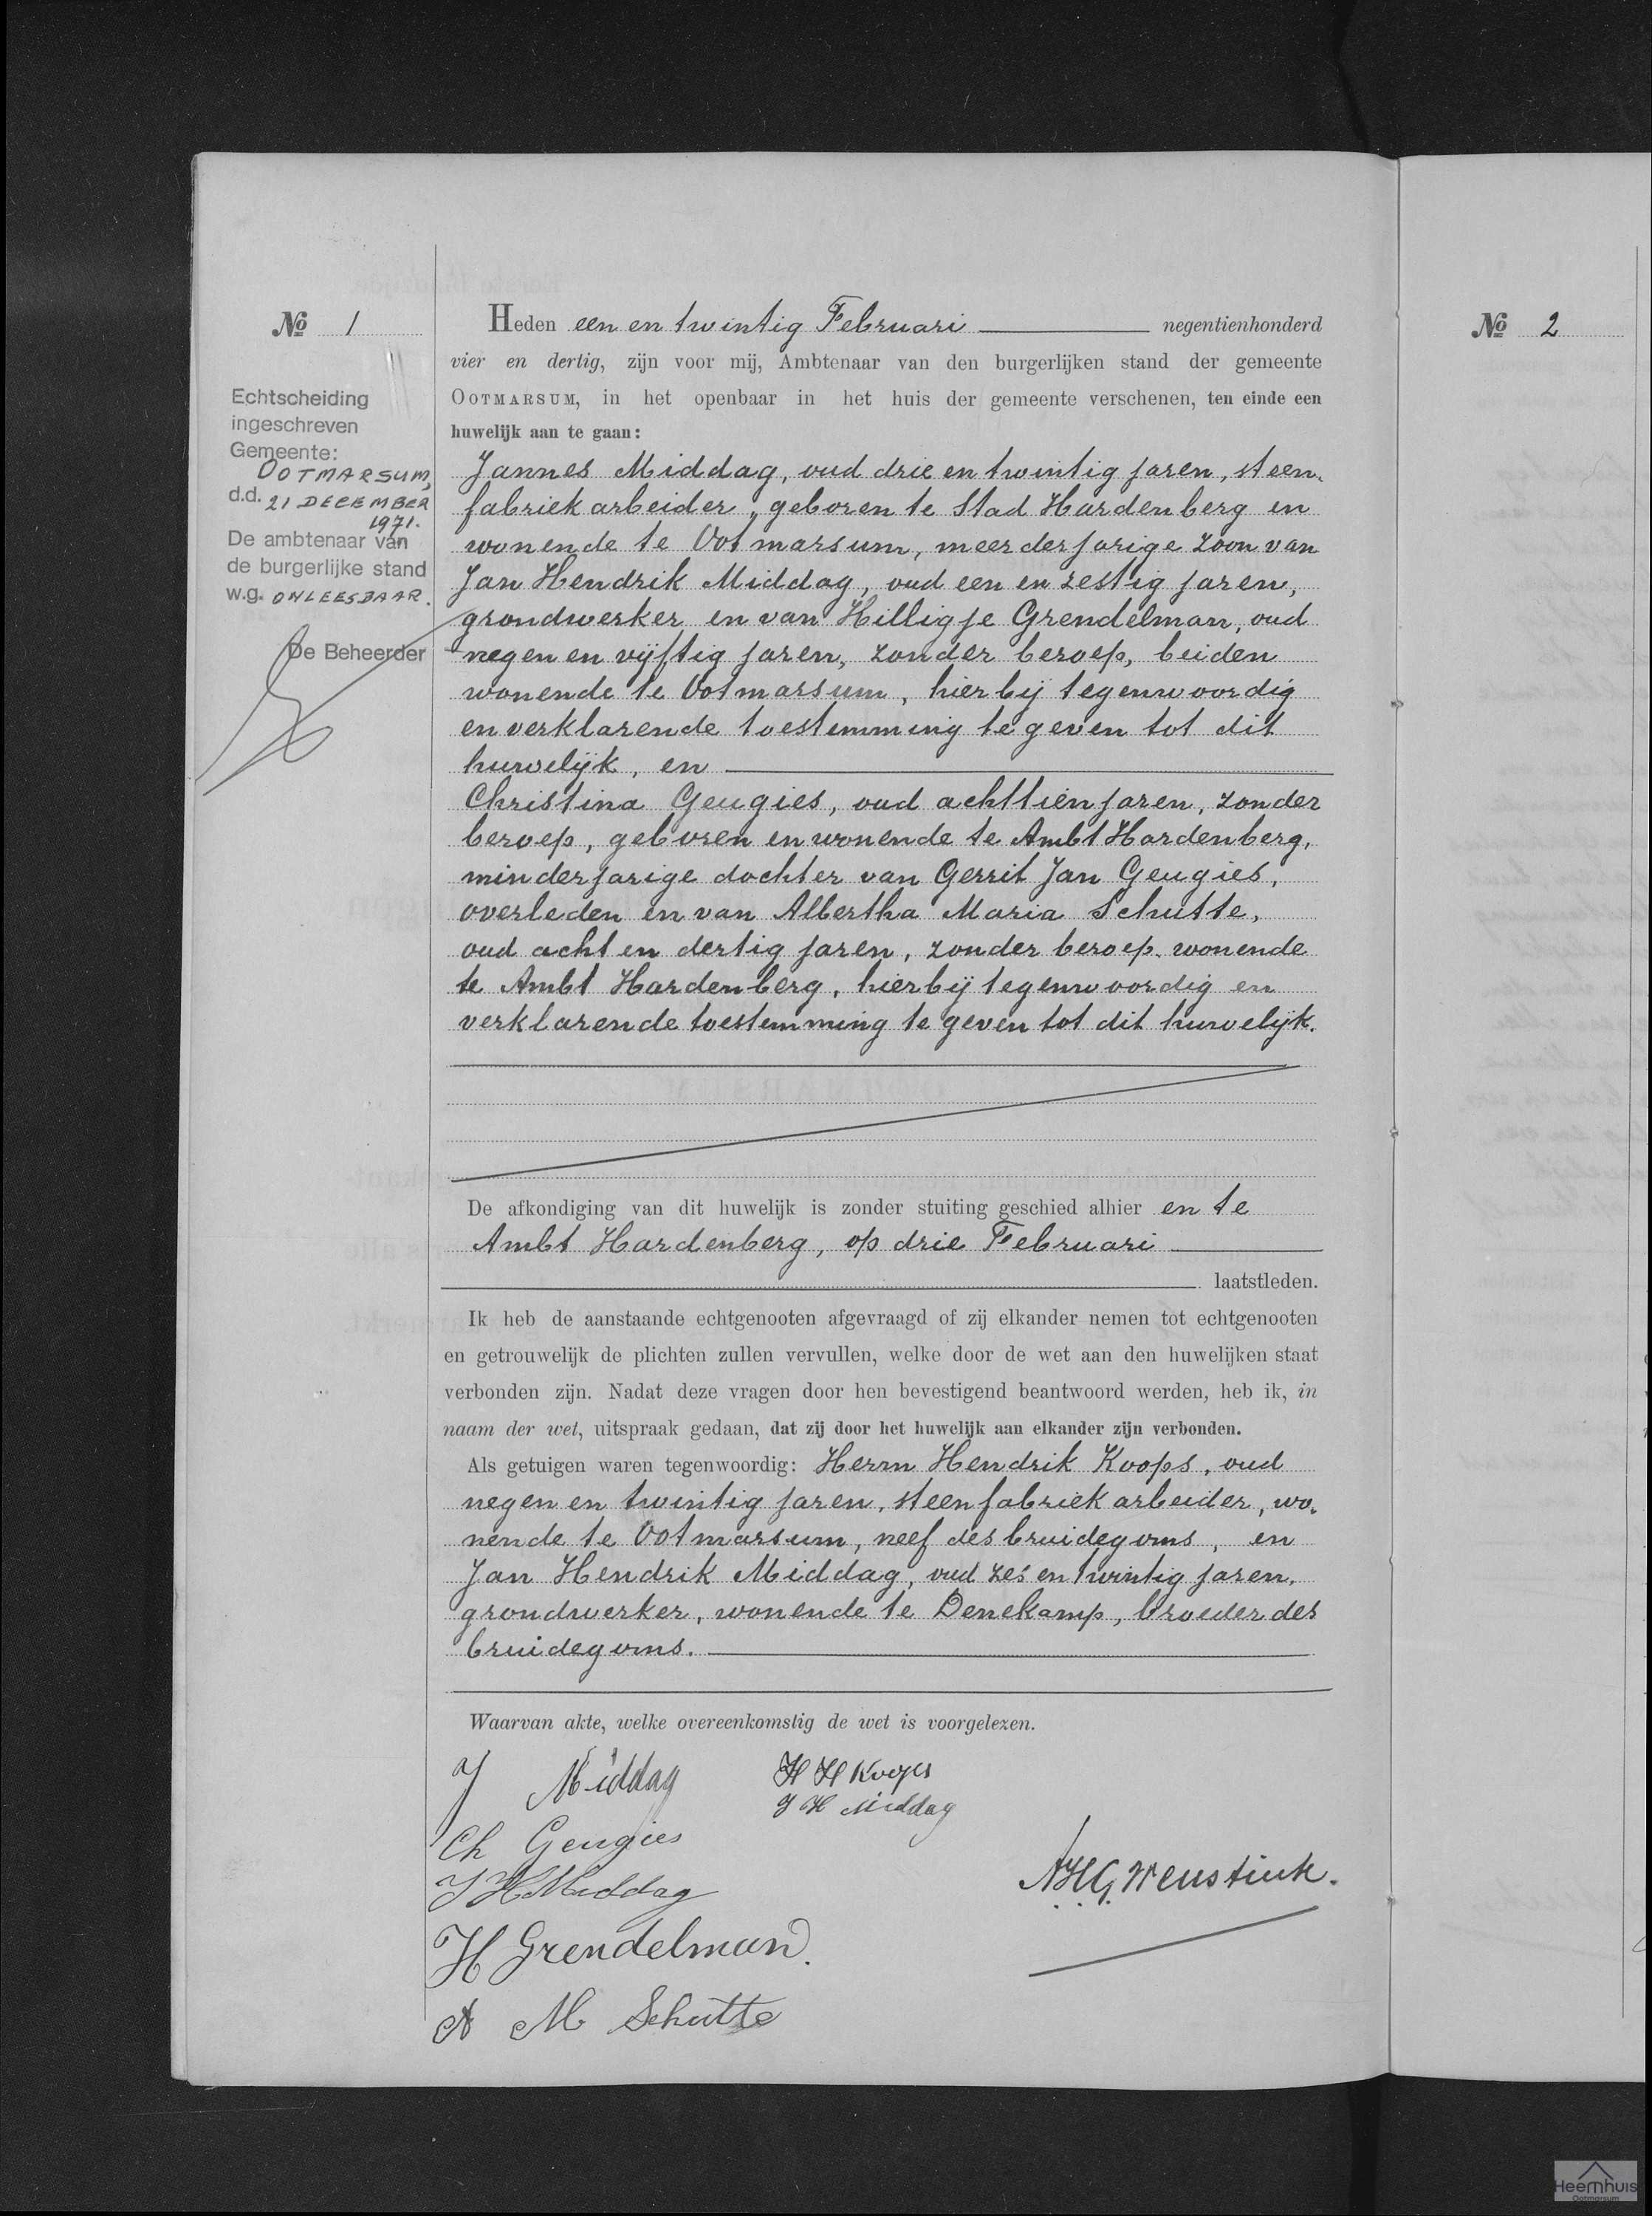 № 1
Echtscheiding
ingeschreven
Gemeente:
OOTMARSUM,
d.d. 21 DECEMBER
1971.
De ambtenaar van
de burgerlijke stand
w.g. ONLEESBAAR.
De Beheerder
Heden een en twintig Februari negentienhonderd
vier en dertig, zijn voor mij, Ambtenaar van den burgerlijken stand der gemeente
OOTMARSUM, in het openbaar in het huis der gemeente verschenen, ten einde een
huwelijk aan te gaan:
Jannes Middag, oud drie en twintig jaren, steen-
fabriek arbeider, geboren te Stad Hardenberg en
wonende te Ootmarsum, meerderjarige zoon van
Jan Hendrik Middag, oud een en zestig jaren,
grondwerker en van Hilligje Grendelman, oud
negen en vijftig jaren, zonder beroep, beiden
wonende te Ootmarsum, hierbij tegenwoordig
en verklarende toestemming te geven tot dit
huwelijk, en
Christina Geugies, oud achttien jaren, zonder
beroep, geboren en wonende te Ambt Hardenberg,
minderjarige dochter van Gerrit Jan Geugies,
overleden en van Albertha Maria Schutte,
oud acht en dertig jaren, zonder beroep, wonende
te Ambt Hardenberg, hierbij tegenwoordig en
verklarende toestemming te geven tot dit huwelijk.
De afkondiging van dit huwelijk is zonder stuiting geschied alhier en te
Ambt Hardenberg, op drie Februari
laatstleden.
Ik heb de aanstaande echtgenooten afgevraagd of zij elkander nemen tot echtgenooten
en getrouwelijk de plichten zullen vervullen, welke door de wet aan den huwelijken staat
verbonden zijn. Nadat deze vragen door hen bevestigend beantwoord werden, heb ik, in
naam der wet, uitspraak gedaan, dat zij door het huwelijk aan elkander zijn verbonden.
Als getuigen waren tegenwoordig: Herm Hendrik Koops, oud
negen en twintig jaren, steenfabriek arbeider, wo-
nende te Ootmarsum, neef des bruidegoms, en
Jan Hendrik Middag, oud zes en twintig jaren,
grondwerker, wonende te Denekamp, broeder des
bruidegoms.
Waarvan akte, welke overeenkomstig de wet is voorgelezen.
J Middag
H H Koops
J H Middag
Ch Geugies
J H Middag
A.H.G. Weustink.
H Grendelman.
A M Schutte
№ 2
Heemhuis
Ootmarsum